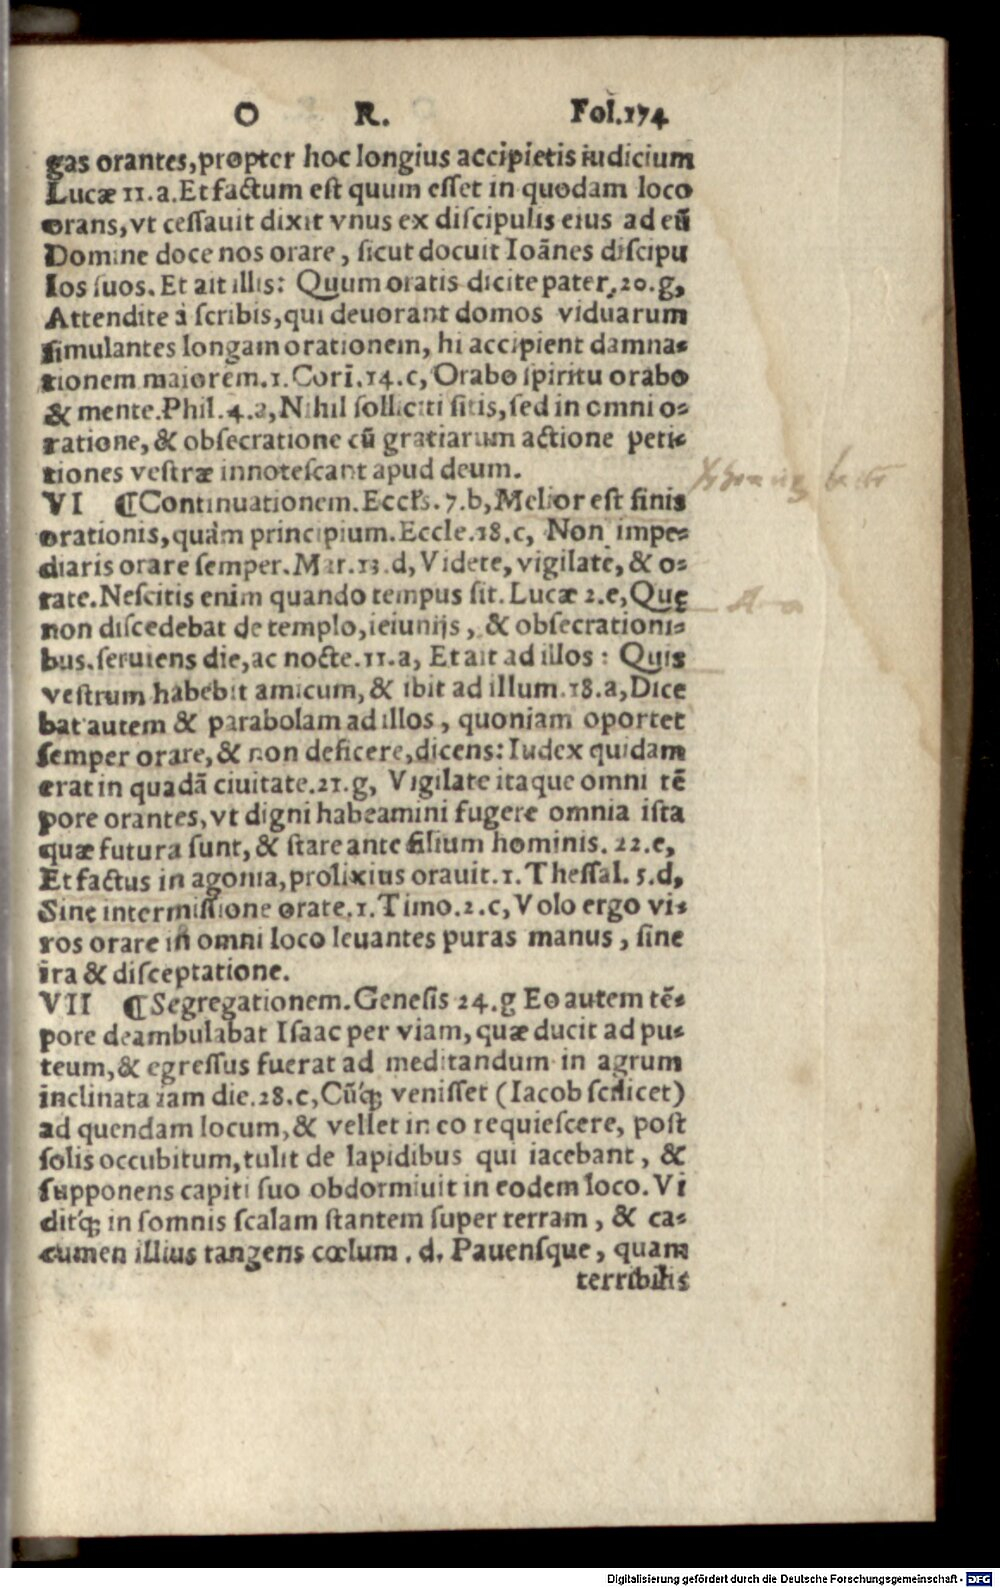 O R. Fol.174
gas orantes, propter hoc longius accipietis iudicium
Lucæ 11.a. Et factum est quum esset in quodam loco
orans, vt cessauit dixit vnus ex discipulis eius ad eũ
Domine doce nos orare, sicut docuit Ioãnes discipu
los suos. Et ait illis: Quum oratis dicite pater, 20.g,
Attendite à scribis, qui deuorant domos viduarum
simulantes longam orationem, hi accipient damna-
tionem maiorem. 1. Corĩ. 14.c, Orabo spiritu orabo
& mente. Phil. 4.a, Nihil solliciti sitis, sed in omni o-
ratione, & obsecratione cũ gratiarum actione peti-
tiones vestræ innotescant apud deum.
VI ¶Continuationem. Eccls. 7.b, Melior est finis
orationis, quàm principium. Eccle. 18.c, Non impe-
diaris orare semper. Mar. 13.d, Videte, vigilate, & o-
rate. Nescitis enim quando tempus sit. Lucæ 2.e, Quę
non discedebat de templo, ieiunijs, & obsecrationi-
bus. seruiens die, ac nocte. 11.a, Et ait ad illos: Quis
vestrum habebit amicum, & ibit ad illum. 18.a, Dice
bat autem & parabolam ad illos, quoniam oportet
semper orare, & non deficere, dicens: Iudex quidam
erat in quadã ciuitate. 21.g, Vigilate itaque omni tẽ
pore orantes, vt digni habeamini fugere omnia ista
quæ futura sunt, & stare ante filium hominis. 22.e,
Et factus in agonia, prolixius orauit. 1. Thessal. 5.d,
Sine intermissione orate. 1. Timo. 2.c, Volo ergo vi-
ros orare in omni loco leuantes puras manus, sine
ira & disceptatione.
VII ¶Segregationem. Genesis 24.g Eo autem tẽ-
pore deambulabat Isaac per viam, quæ ducit ad pu-
teum, & egressus fuerat ad meditandum in agrum
inclinata iam die. 28.c, Cũq; venisset (Iacob scilicet)
ad quendam locum, & vellet in eo requiescere, post
solis occubitum, tulit de lapidibus qui iacebant, &
supponens capiti suo obdormiuit in eodem loco. Vi
ditq; in somnis scalam stantem super terram, & ca-
cumen illius tangens cœlum. d. Pauensque, quam
terribilis
Digitalisierung gefördert durch die Deutsche Forschungsgemeinschaft - DFG